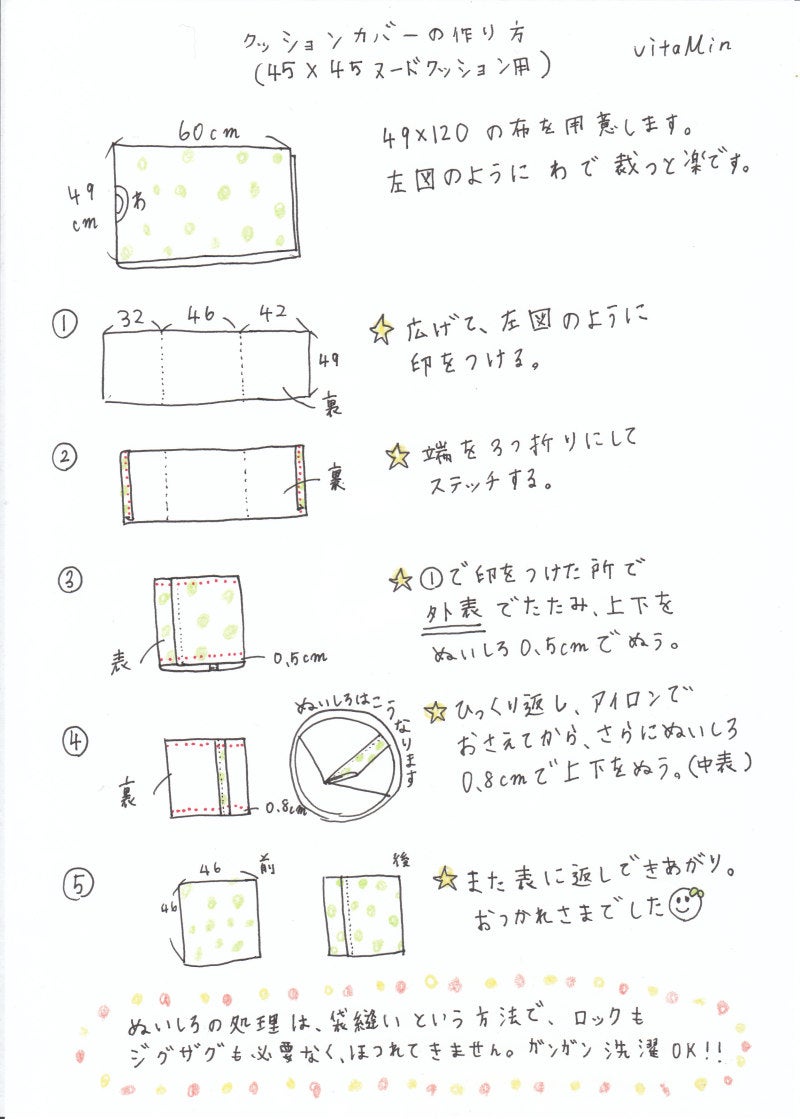 クッションカバーの作り方
(45×45ヌードクッション用)
vitaMin
60cm
49
cm
わ
49×120 の布を用意します。
左図のように わで 裁つと楽です。
①
32 46 42
49
裏
☆ 広げて、左図のように
印をつける。
②
裏
☆ 端を3つ折りにして
ステッチする。
③
表
0.5cm
☆ ①で印をつけた所で
外表でたたみ、上下を
ぬいしろ0.5cmでぬう。
④
裏
0.8cm
ぬいしろはこうなります
☆ ひっくり返し、アイロンで
おさえてから、さらにぬいしろ
0.8cmで上下をぬう。(中表)
⑤
46
46
前
後
☆ また表に返しできあがり。
おつかれさまでした
ぬいしろの処理は、袋縫いという方法で、ロックも
ジグザグも必要なく、ほつれてきません。ガンガン洗濯OK!!